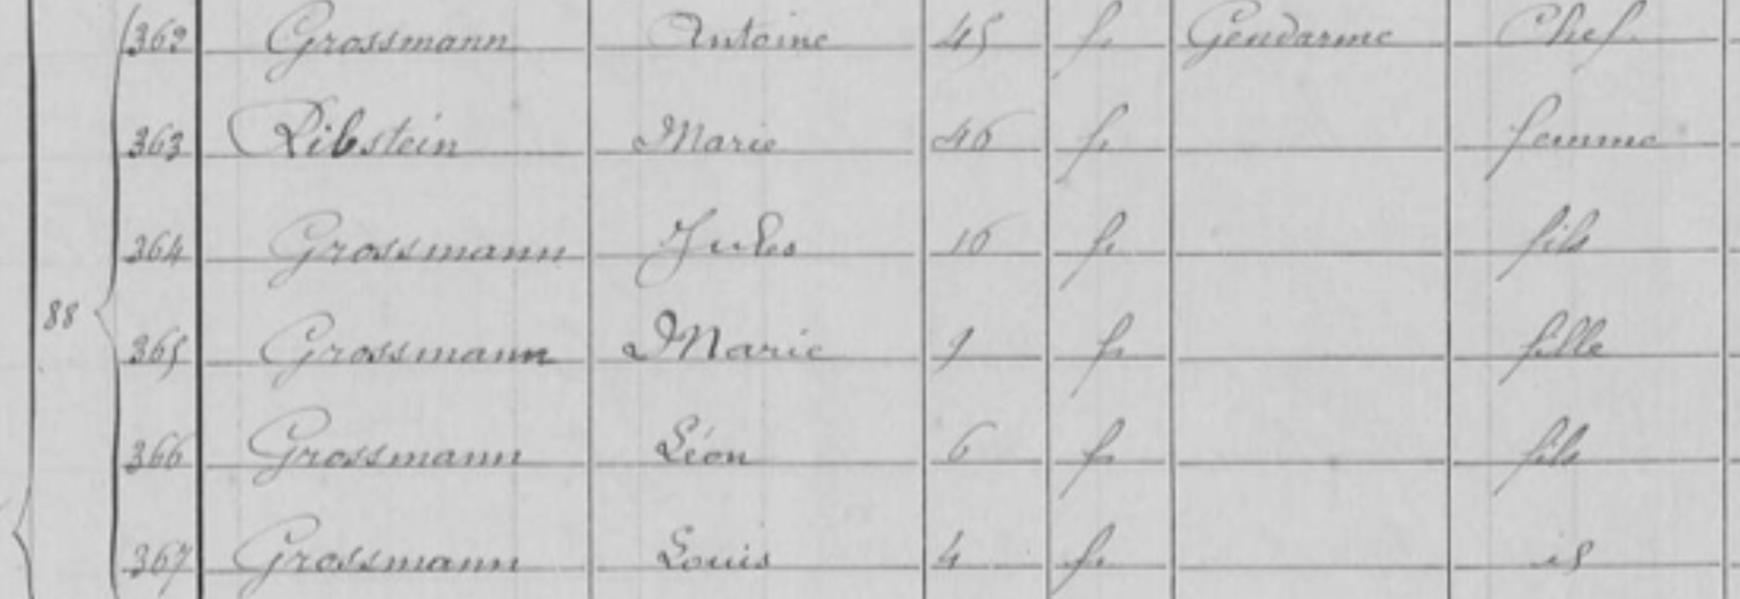 362 Grossmann Antoine 45 f. Gendarme Chef
363 Ribstein Marie 46 f. femme
364 Grossmann Jules 16 f. fils
88
365 Grossmann Marie 9 f. fille
366 Grossmann Léon 6 f. fils
367 Grossmann Louis 4 f. id